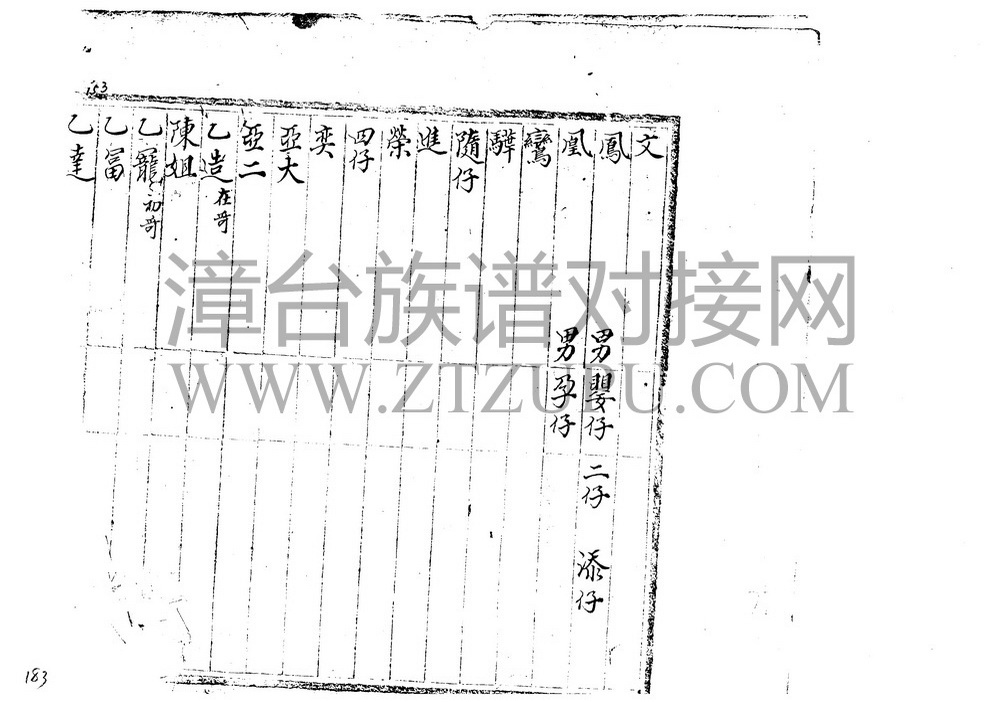 153
文
鳳 男 翠仔 二仔 添仔
凰 男 孕仔
鸞
驊
隨仔
進
榮
四仔
奕
亞大
亞二
乙造 在哥
陳姐
乙寵 初哥
乙富
乙達
漳台族谱对接网
WWW.ZTZUPU.COM
183